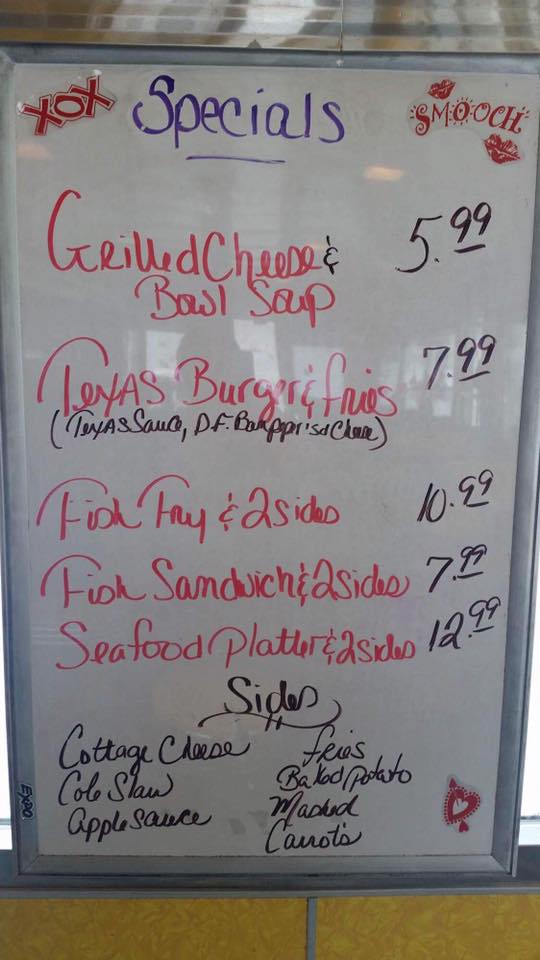 XOX
Specials
SMOOCH
Grilled Cheese & 5.99
Bowl Soup
Texas Burger & fries 7.99
(Texas Sauce, D.F. Ban pepper's & Cheese)
Fish Fry & 2 sides 10.99
Fish Sandwich & 2 sides 7.99
Seafood Platter & 2 sides 12.99
Sides
Cottage Cheese
Cole Slaw
Apple Sauce
fries
Baked Potato
Mashed
Carrots
EXPO